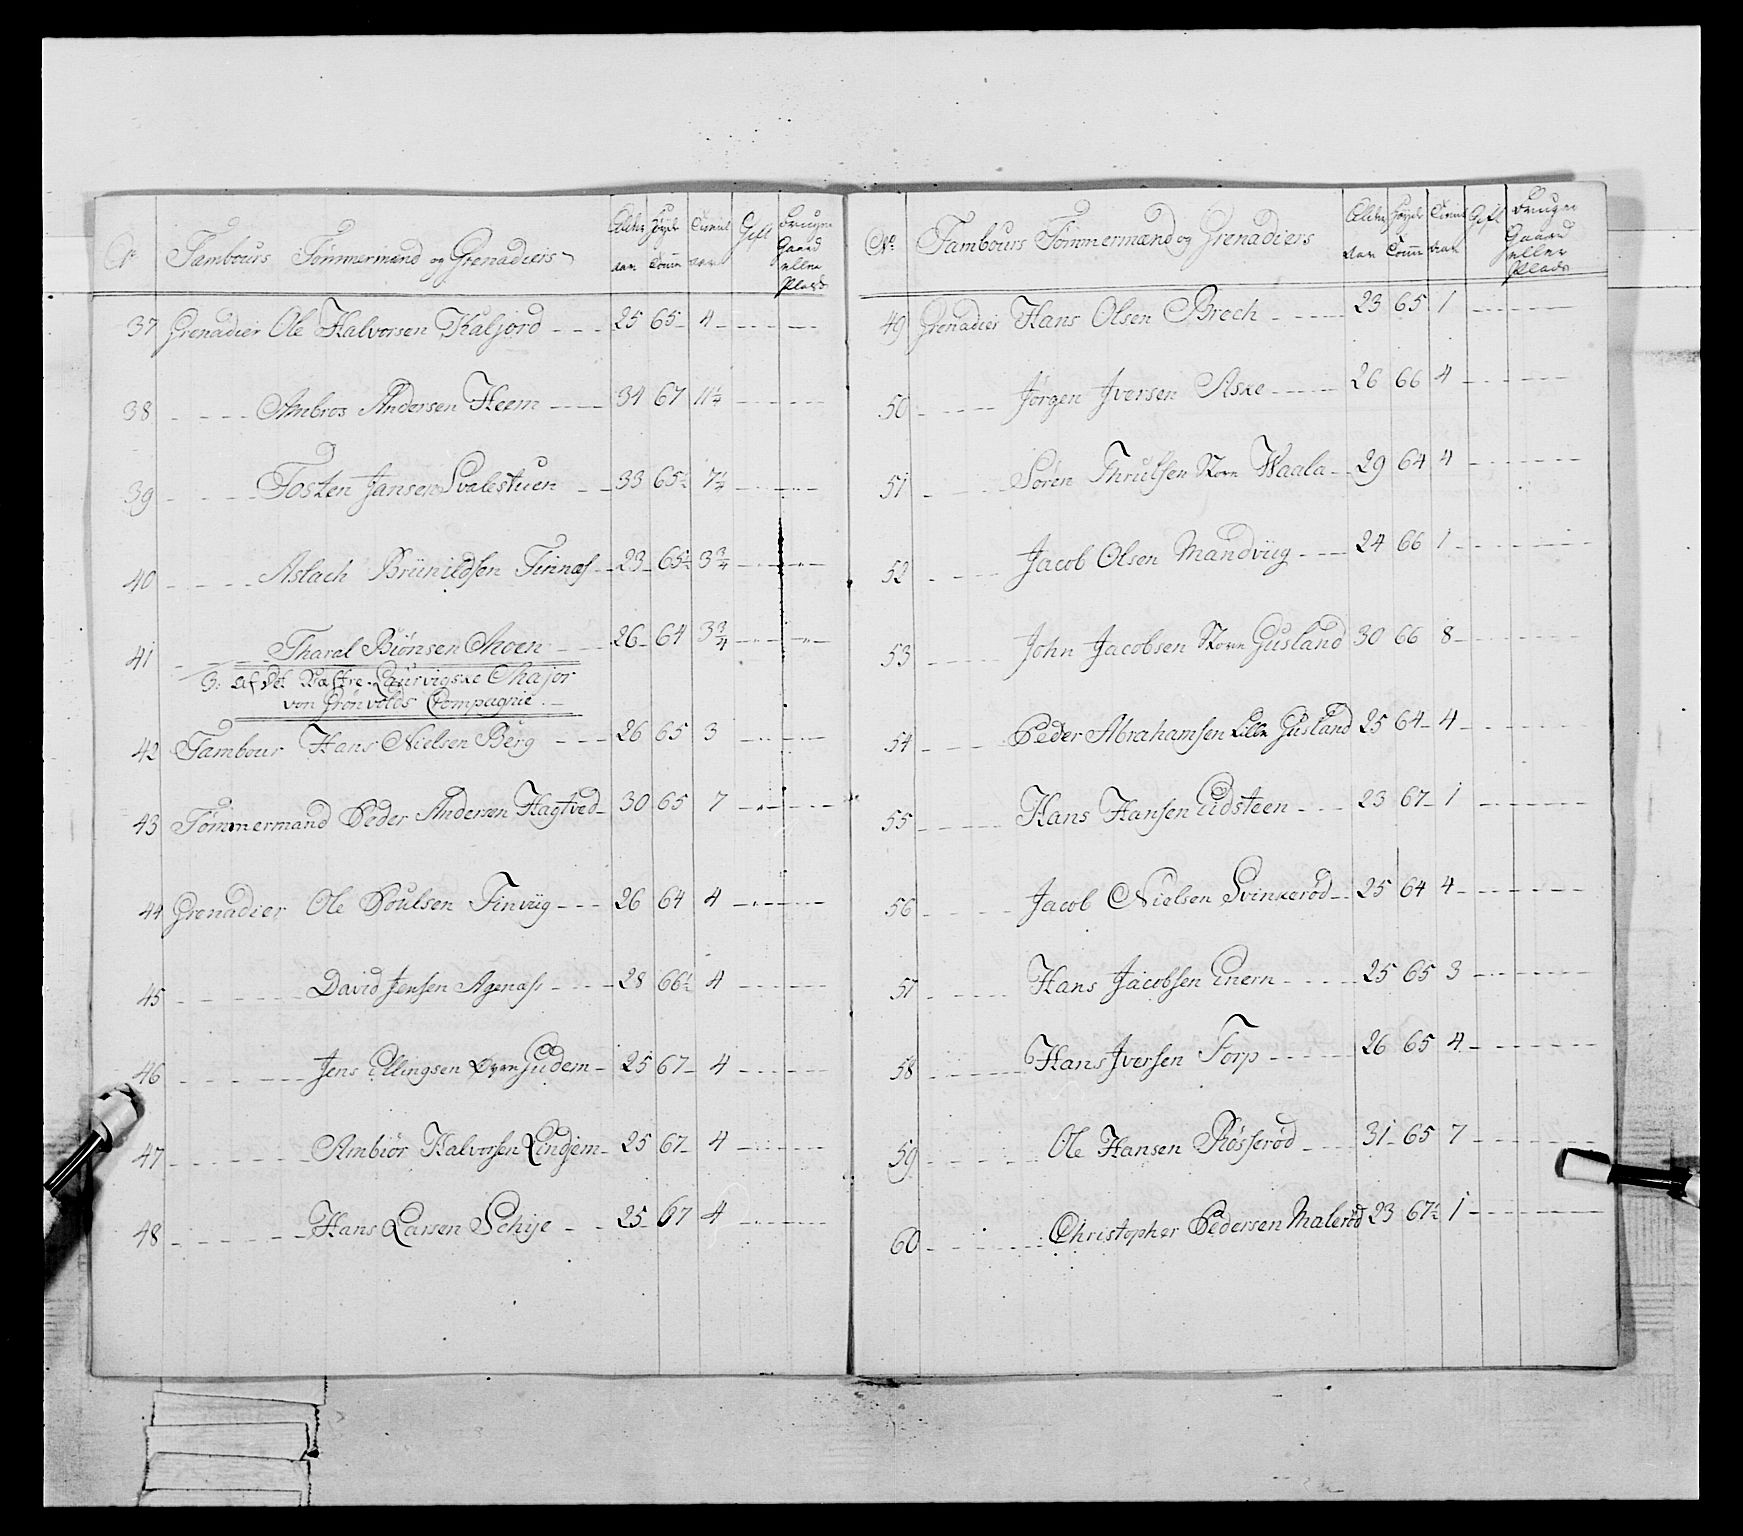 Nr Tambours Tømmermænd og Grenadiers Alder Aar Høyde Tomme Tienist Aar Gift Bruger Gaard eller Plads
37 Grenadier Ole Halvorsen Kaljord 25 65 4
38 Ambros Andersen Heem 34 67 11 1/4
39 Tosten Jansen Svalestuen 33 65 1/2 7 1/4
40 Aslach Brünildsen Tinnæs 23 65 1/2 3 3/4
41 Tharel Biönsen Moen 26 64 3 3/4
3: af det Væstre Laurvigske Major
von Grönvolds Compagnie
42 Tambour Hans Nielsen Berg 26 65 3
43 Tømmermand Peder Andersen Hagtved 30 65 7
44 Grenadier Ole Poulsen Tinvüg 26 64 4
45 David Jensen Agenæs 28 66 1/2 4
46 Jens Ellingsen Øvre Gudem 25 67 4
47 Ambiör Halvorsen Lindjem 25 67 4
48 Hans Larsen Schije 25 67 4
No Tambours Tømmermænd og Grenadiers Alder Aar Høyde Tomme Tienist Aar Gift Bruger Gaard eller Plads
49 Grenadier Hans Olsen Brech 23 65 1
50 Jørgen Iversen Aske 26 66 4
51 Sören Thrulsen Store Waala 29 64 4
52 Jacob Olsen Mandvüg 24 66 1
53 John Jacobsen Store Gusland 30 66 8
54 Peder Abrahamsen Lille Gusland 25 64 4
55 Hans Hansen Eidsteen 23 67 1
56 Jacob Nielsen Svinkeröd 25 64 4
57 Hans Jacobsen Enern 25 65 3
58 Hans Iversen Torp 26 65 4
59 Ole Hansen Rösseröd 31 65 7
60 Christopher Pedersen Maleröd 23 67 1/2 1